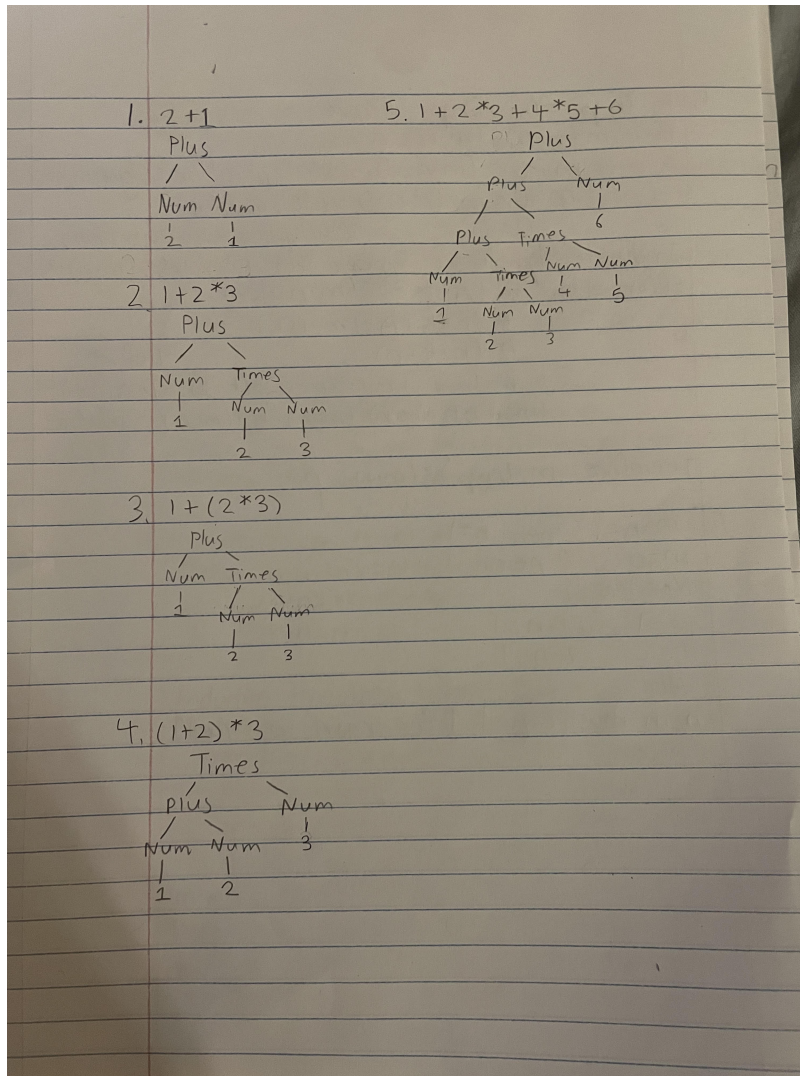 1. 2+1
Plus
Num Num
2 1
2 1+2*3
Plus
Num Times
1 Num Num
2 3
3. 1+(2*3)
Plus
Num Times
1 Num Num
2 3
4. (1+2)*3
Times
Plus Num
Num Num 3
1 2
5. 1+2*3+4*5+6
Plus
Plus Num
6
Plus Times
Num Times Num Num
1 Num Num 4 5
2 3